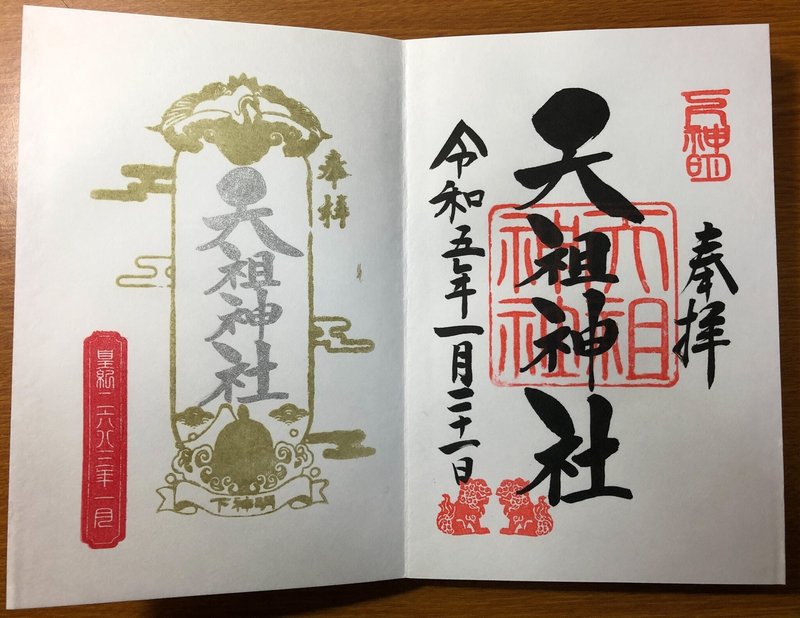 下神明
奉拝
天祖神社
天祖神社
令和五年一月二十一日
奉拝
天祖神社
下神明
皇紀二六八三年一月